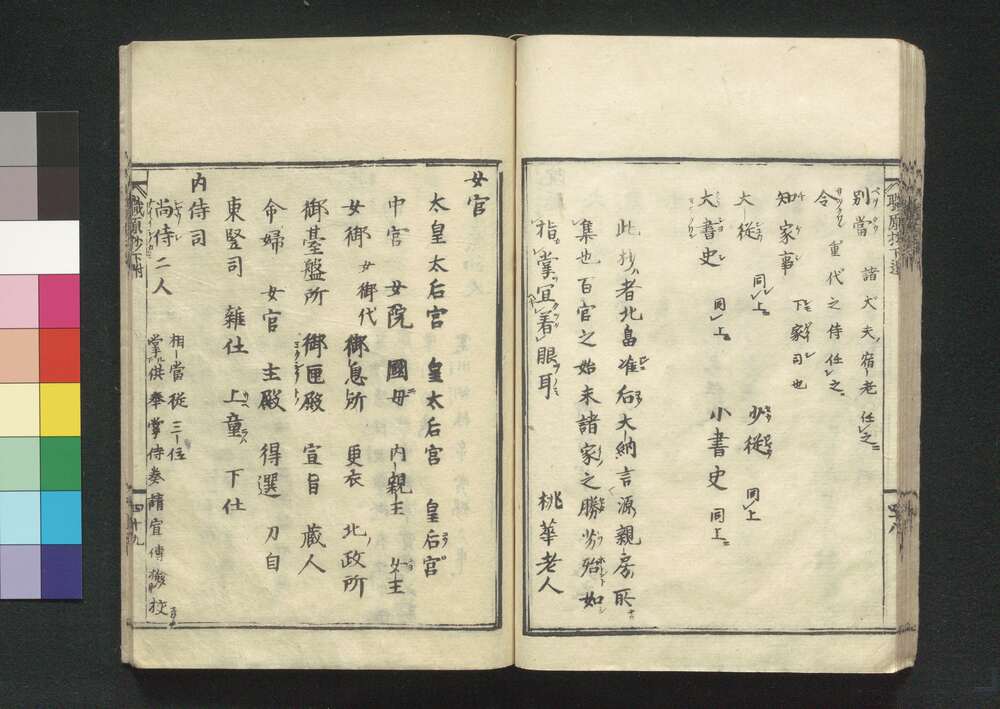 別當 諸大夫宿老任之
令 重代之侍任之
知家事 下家司也
大從 同上 少從 同上
大書史 同上 小書史 同上
此抄者北畠准后大納言源親房所
集也百官之始末諸家之勝劣殆如
指掌宜着眼耳 桃華老人
四十八
女官
太皇太后宮 皇太后宮 皇后宮
中宮 女院 國母 内親王 女王
女御 女御代 御息所 更衣 北政所
御臺盤所 御匣殿 宣旨 蔵人
命婦 女官 主殿 得選 刀自
東竪司 雜仕 上童 下仕
内侍司
尚侍二人 相當從三位
掌供奉掌侍奏請宣傳檢校
職原抄下
四十九